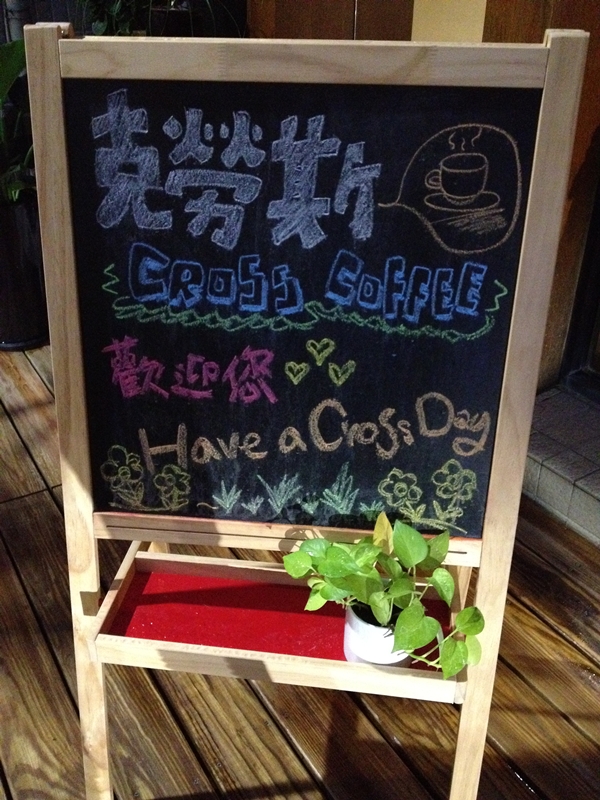 克勞斯
CROSS COFFEE
歡迎您
Have a Cross Day